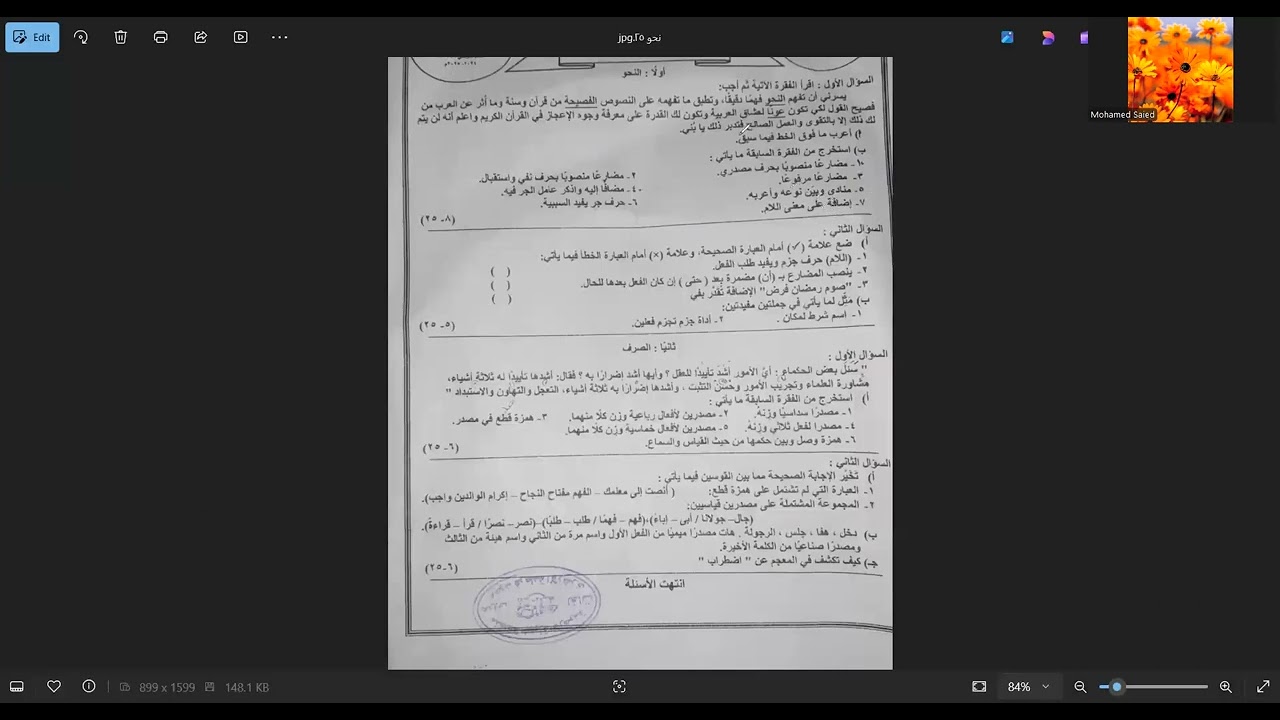 Edit
نحو ٢٥.jpg
Mohamed Saied
أولًا : النحو
السؤال الأول : اقرأ الفقرة الآتية ثم أجب:
يسرني أن تفهم النحو فهمًا دقيقًا، وتطبق ما تفهمه على النصوص الفصيحة من قرآن وسنة وما أثر عن العرب من
فصيح القول لكي تكون عونًا لعشاق العربية وتكون لك القدرة على معرفة وجوه الإعجاز في القرآن الكريم واعلم أنه لن يتم
لك ذلك إلا بالتقوى والعمل الصالح فتدبر ذلك يا بُني.
أ) أعرب ما فوق الخط فيما سبق.
ب) استخرج من الفقرة السابقة ما يأتي :
١- مضارعًا منصوبًا بحرف مصدري. ٢- مضارعًا منصوبًا بحرف نفي واستقبال.
٣- مضارعًا مرفوعًا. ٤- مضافًا إليه واذكر عامل الجر فيه.
٥- منادى وبين نوعه وأعربه. ٦- حرف جر يفيد السببية.
٧- إضافة على معنى اللام.
(٨- ٢٥)
السؤال الثاني :
أ) ضع علامة (✓) أمام العبارة الصحيحة، وعلامة (×) أمام العبارة الخطأ فيما يأتي:
١- (اللام) حرف جزم ويفيد طلب الفعل. ( )
٢- ينصب المضارع بـ (أن) مضمرة بعد ( حتى ) إن كان الفعل بعدها للحال. ( )
٣- "صوم رمضان فرض" الإضافة تُقدّر بفي ( )
ب) مثّل لما يأتي في جملتين مفيدتين:
١- اسم شرط لمكان . ٢- أداة جزم تجزم فعلين.
(٥- ٢٥)
ثانيًا : الصرف
السؤال الأول :
" سُئل بعض الحكماء : أيُّ الأمور أشدّ تأييدًا للعقل ؟ وأيها أشد إضرارًا به ؟ فقال: أشدها تأييدًا له ثلاثة أشياء،
مشاورة العلماء وتجريب الأمور وحُسْنُ التثبت ، وأشدها إضرارًا به ثلاثة أشياء، التعجّل والتهاون والاستبداد "
أ) استخرج من الفقرة السابقة ما يأتي :
١- مصدرًا سداسيًا وزنهُ. ٢- مصدرين لأفعال رباعية وزن كلًا منهما. ٣- همزة قطع في مصدر.
٤- مصدرا لفعل ثلاثي وزنهُ. ٥- مصدرين لأفعال خماسية وزن كلًا منهما.
٦- همزة وصل وبين حكمها من حيث القياس والسماع.
(٦- ٢٥)
السؤال الثاني :
أ) تخيّر الإجابة الصحيحة مما بين القوسين فيما يأتي :
١- العبارة التي لم تشتمل على همزة قطع: ( أنصت إلى معلمك – الفهم مفتاح النجاح – إكرام الوالدين واجب).
٢- المجموعة المشتملة على مصدرين قياسيين:
(جال- جولانا / أبى – إباءً)،(فهم – فهمًا / طلب – طلبًا)–(نصر- نصرًا / قرأ – قراءةً).
ب) دخل ، هفا ، جلس ، الرجولة . هات مصدرًا ميميًا من الفعل الأول واسم مرة من الثاني واسم هيئة من الثالث
ومصدرًا صناعيًا من الكلمة الأخيرة.
جـ) كيف تكشف في المعجم عن " اضطراب "
(٦-٢٥)
انتهت الأسئلة
899 x 1599
148.1 KB
84%